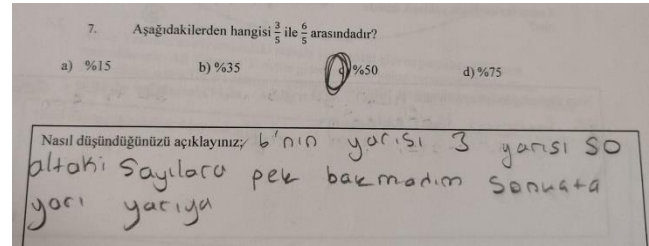 7. Aşağıdakilerden hangisi 3/5 ile 6/5 arasındadır?
a) %15 b) %35 c) %50 d) %75
Nasıl düşündüğünüzü açıklayınız; 6'nın yarısı 3 yarısı 50
altaki Sayılara pek bakmadım Sonuçta
yarı yarıya